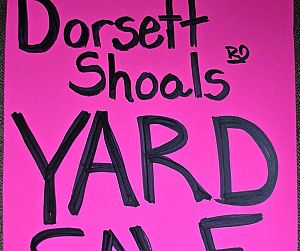 Dorsett
Shoals RD
YARD
SALE